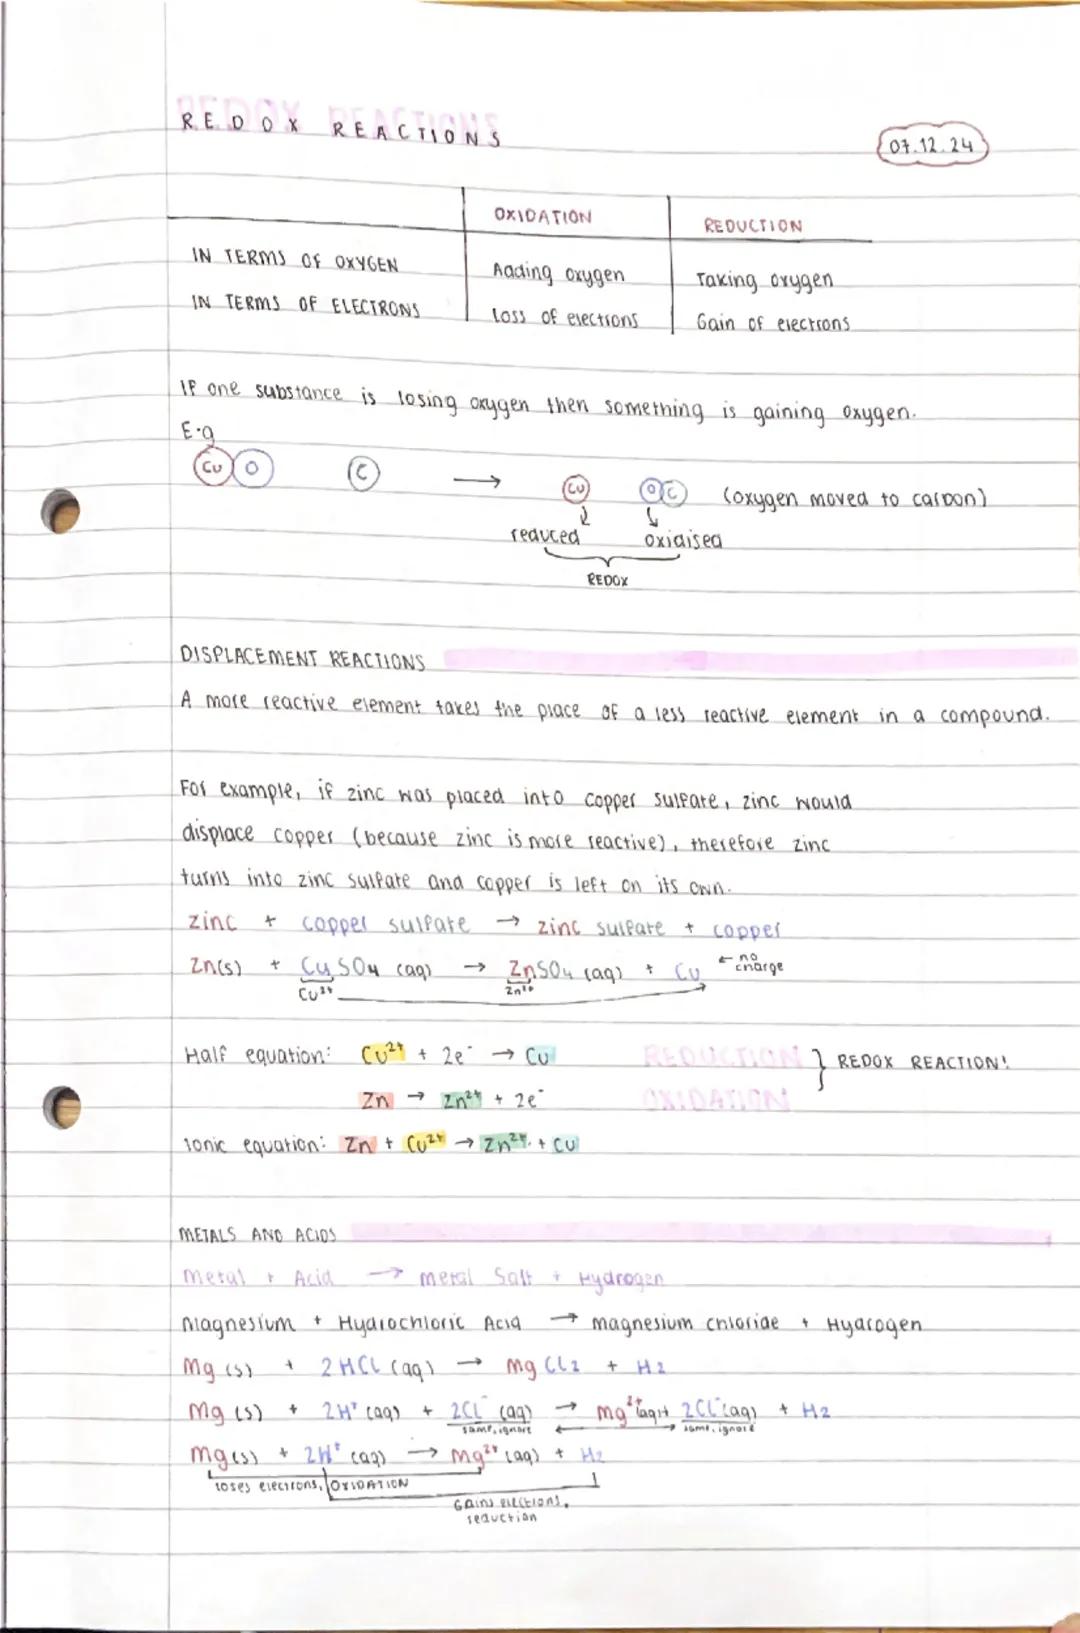 REDOX REACTIONS
07.12.24
OXIDATION REDUCTION
IN TERMS OF OXYGEN Adding oxygen Taking oxygen
IN TERMS OF ELECTRONS Loss of electrons Gain of electrons
If one substance is losing oxygen then something is gaining oxygen.
E.g
Cu O C → Cu O C (oxygen moved to carbon)
reduced oxidised
REDOX
DISPLACEMENT REACTIONS
A more reactive element takes the place of a less reactive element in a compound.
For example, if zinc was placed into copper sulfate, zinc would
displace copper (because zinc is more reactive), therefore zinc
turns into zinc sulfate and copper is left on its own.
zinc + copper sulfate → zinc sulfate + copper
Zn(s) + CuSO4 (aq) → ZnSO4 (aq) + Cu ← no charge
Cu²⁺ Zn²⁺
Half equation: Cu²⁺ + 2e⁻ → Cu REDUCTION } REDOX REACTION!
Zn → Zn²⁺ + 2e⁻ OXIDATION
Ionic equation: Zn + Cu²⁺ → Zn²⁺ + Cu
METALS AND ACIDS
Metal + Acid → metal Salt + Hydrogen
Magnesium + Hydrochloric Acid → magnesium chloride + Hydrogen
Mg (s) + 2HCl (aq) → MgCl2 + H2
Mg (s) + 2H⁺ (aq) + 2Cl⁻ (aq) → Mg²⁺(aq) + 2Cl⁻(aq) + H2
same, ignore same, ignore
Mg(s) + 2H⁺ (aq) → Mg²⁺ (aq) + H2
loses electrons, OXIDATION
Gains electrons,
reduction